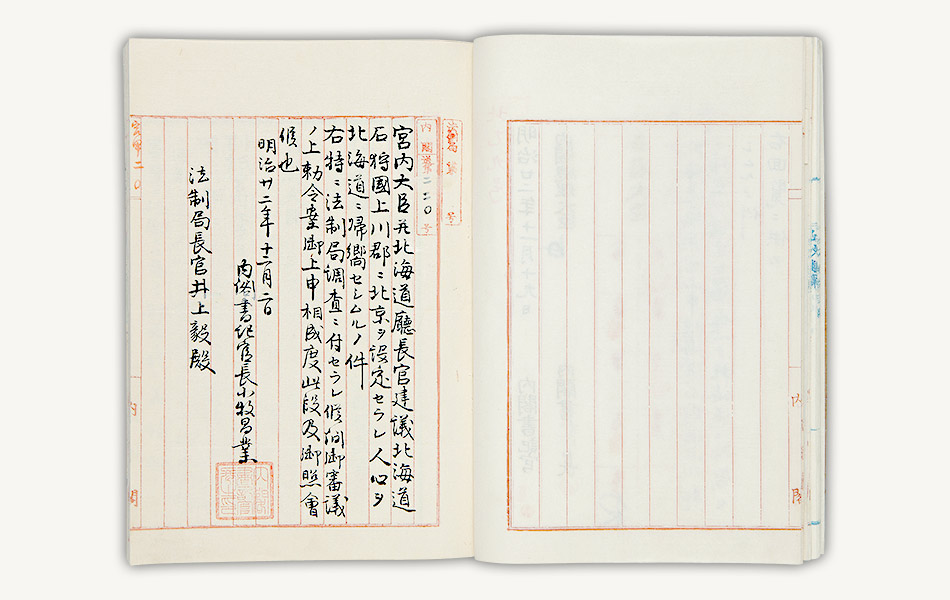 内閣第二二〇号
宮内大臣并北海道廳長官建議北海道
石狩國上川郡ニ北京ヲ設定セラレ人心ヲ
北海道ニ帰嚮セシムルノ件
右特ニ法制局調査ニ付セラレ候間御審議
ノ上勅令案御上申相成度此段及御照會
候也
明治廿二年十二月二日
内閣書記官長小牧昌業
法制局長官井上毅殿
内閣